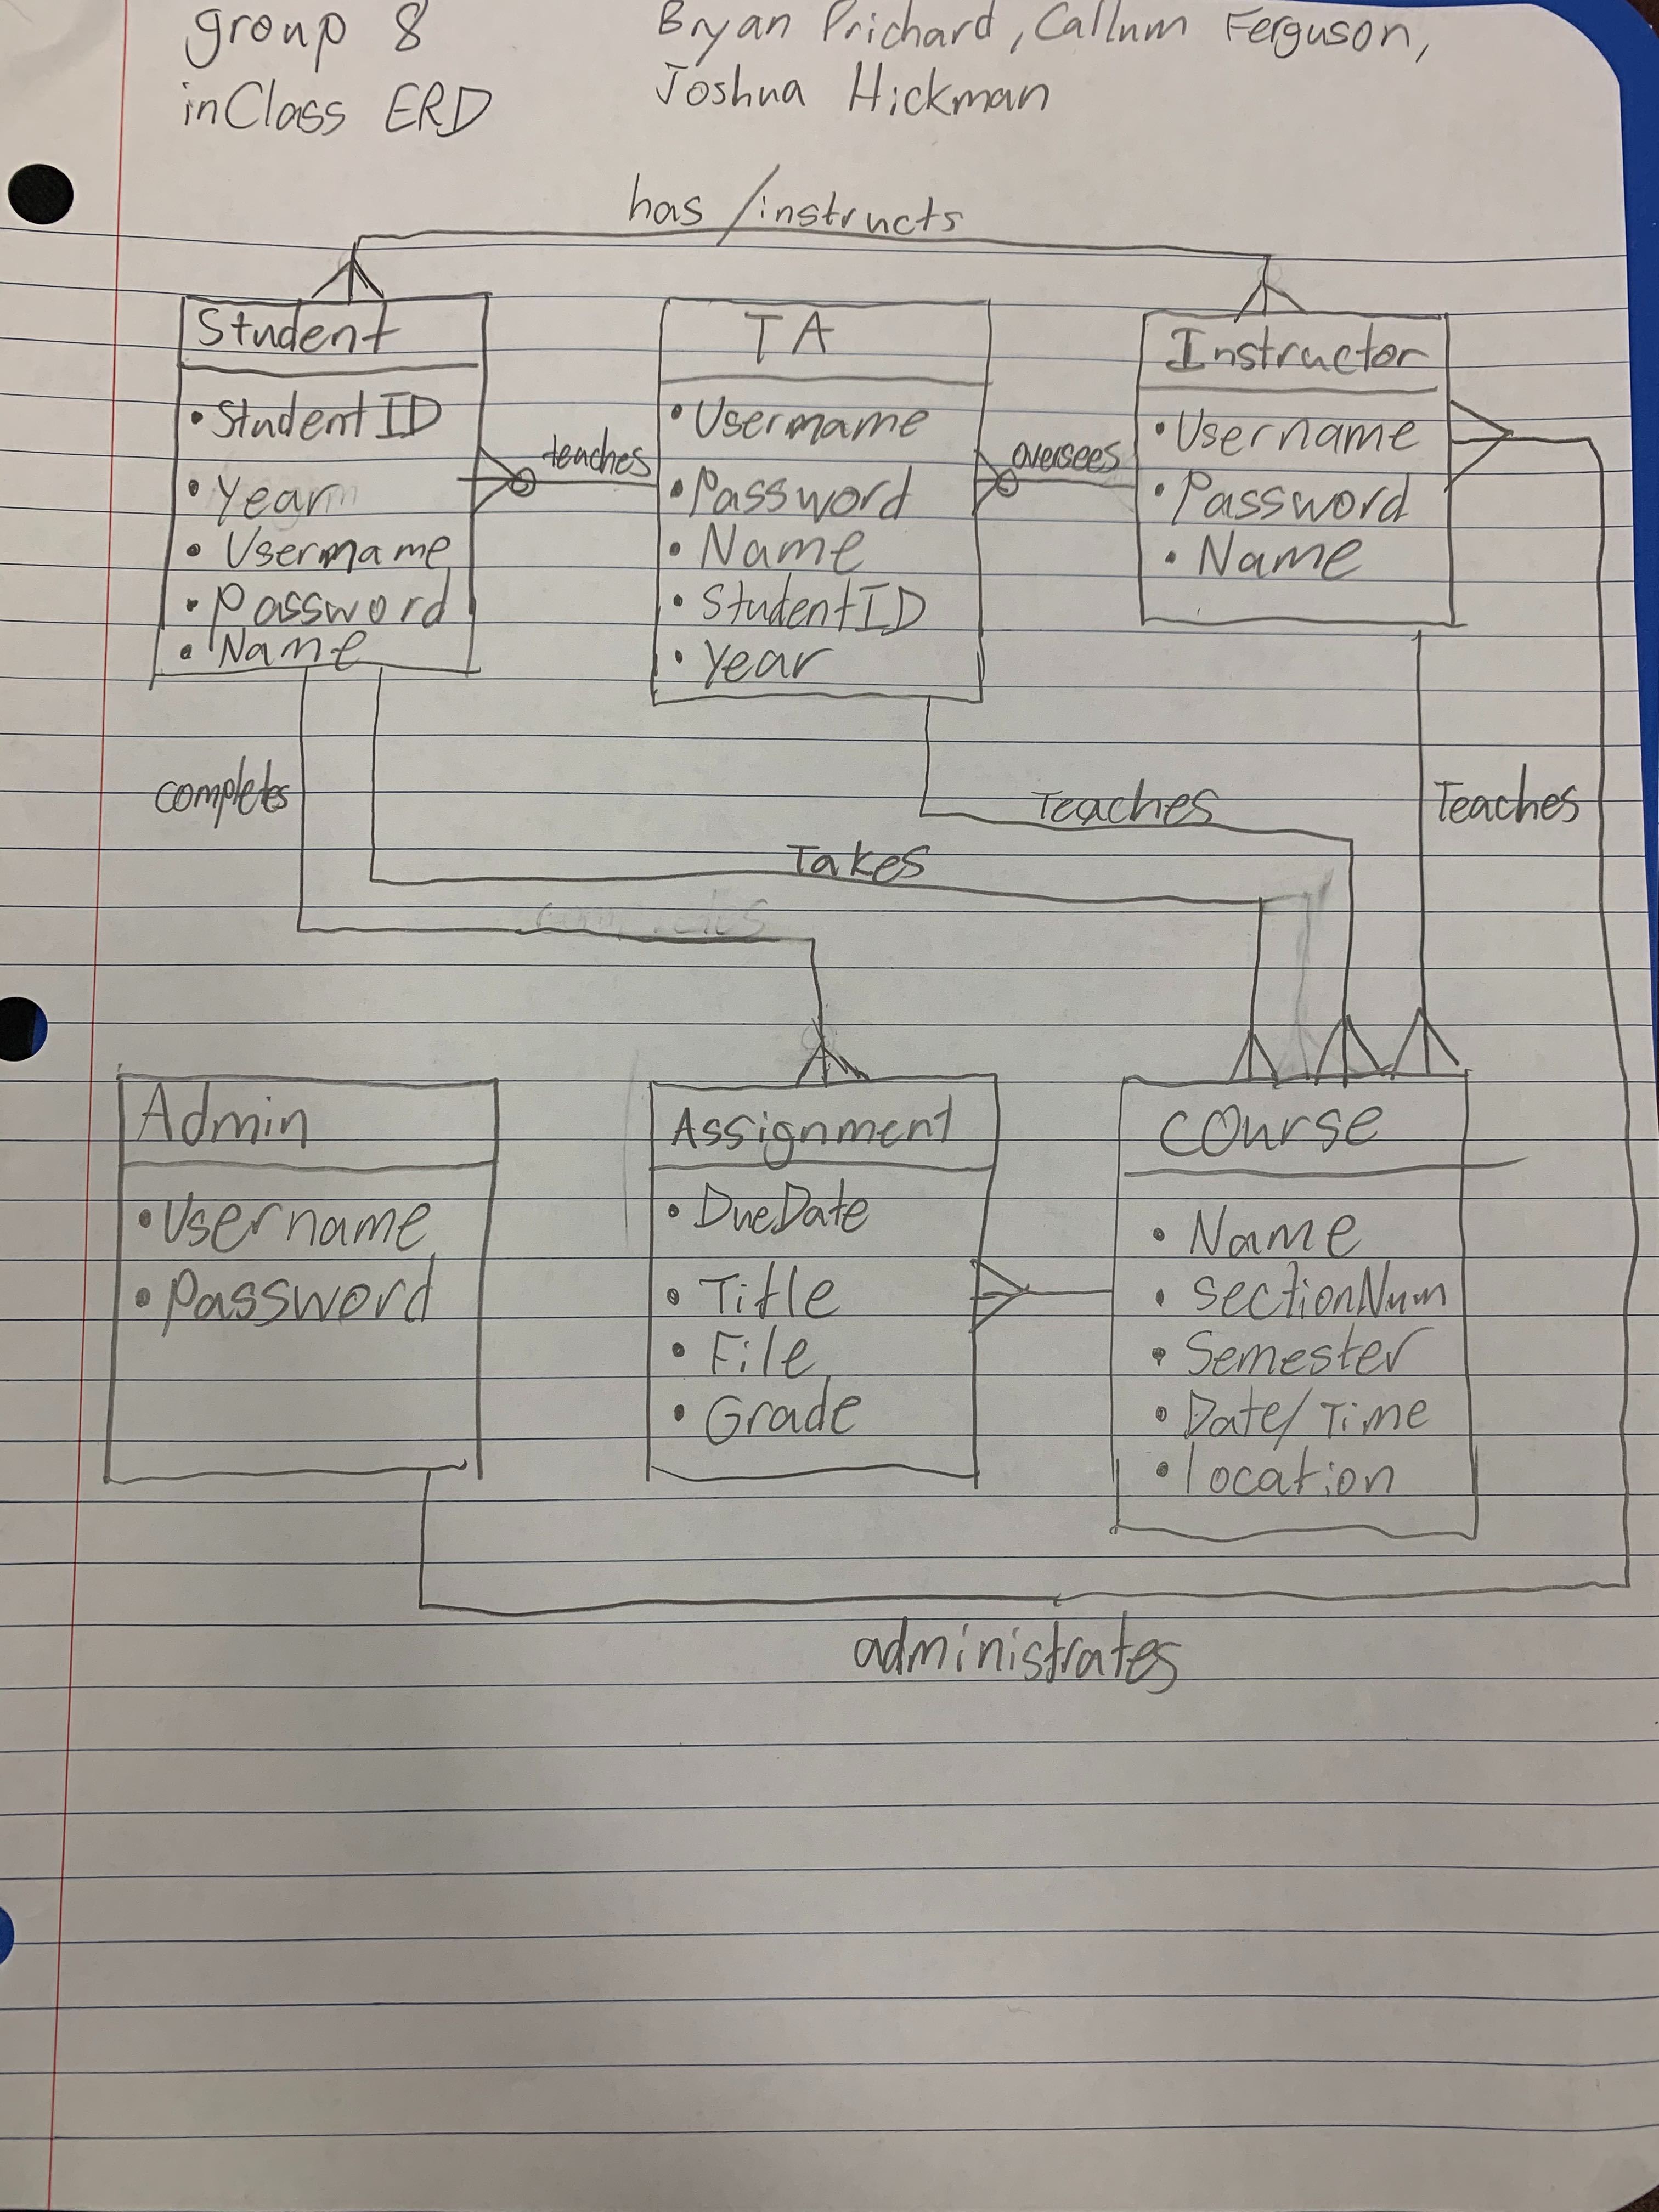 group 8
inClass ERD
Bryan Prichard, Callum Ferguson,
Joshua Hickman
has / instructs
Student
• StudentID
• Year
• Username
• Password
• Name
teaches
TA
• Username
• Password
• Name
• StudentID
• Year
oversees
Instructor
• Username
• Password
• Name
completes
Teaches
Teaches
Takes
Admin
• Username
• Password
Assignment
• DueDate
• Title
• File
• Grade
Course
• Name
• SectionNum
• Semester
• Date/Time
• location
administrates